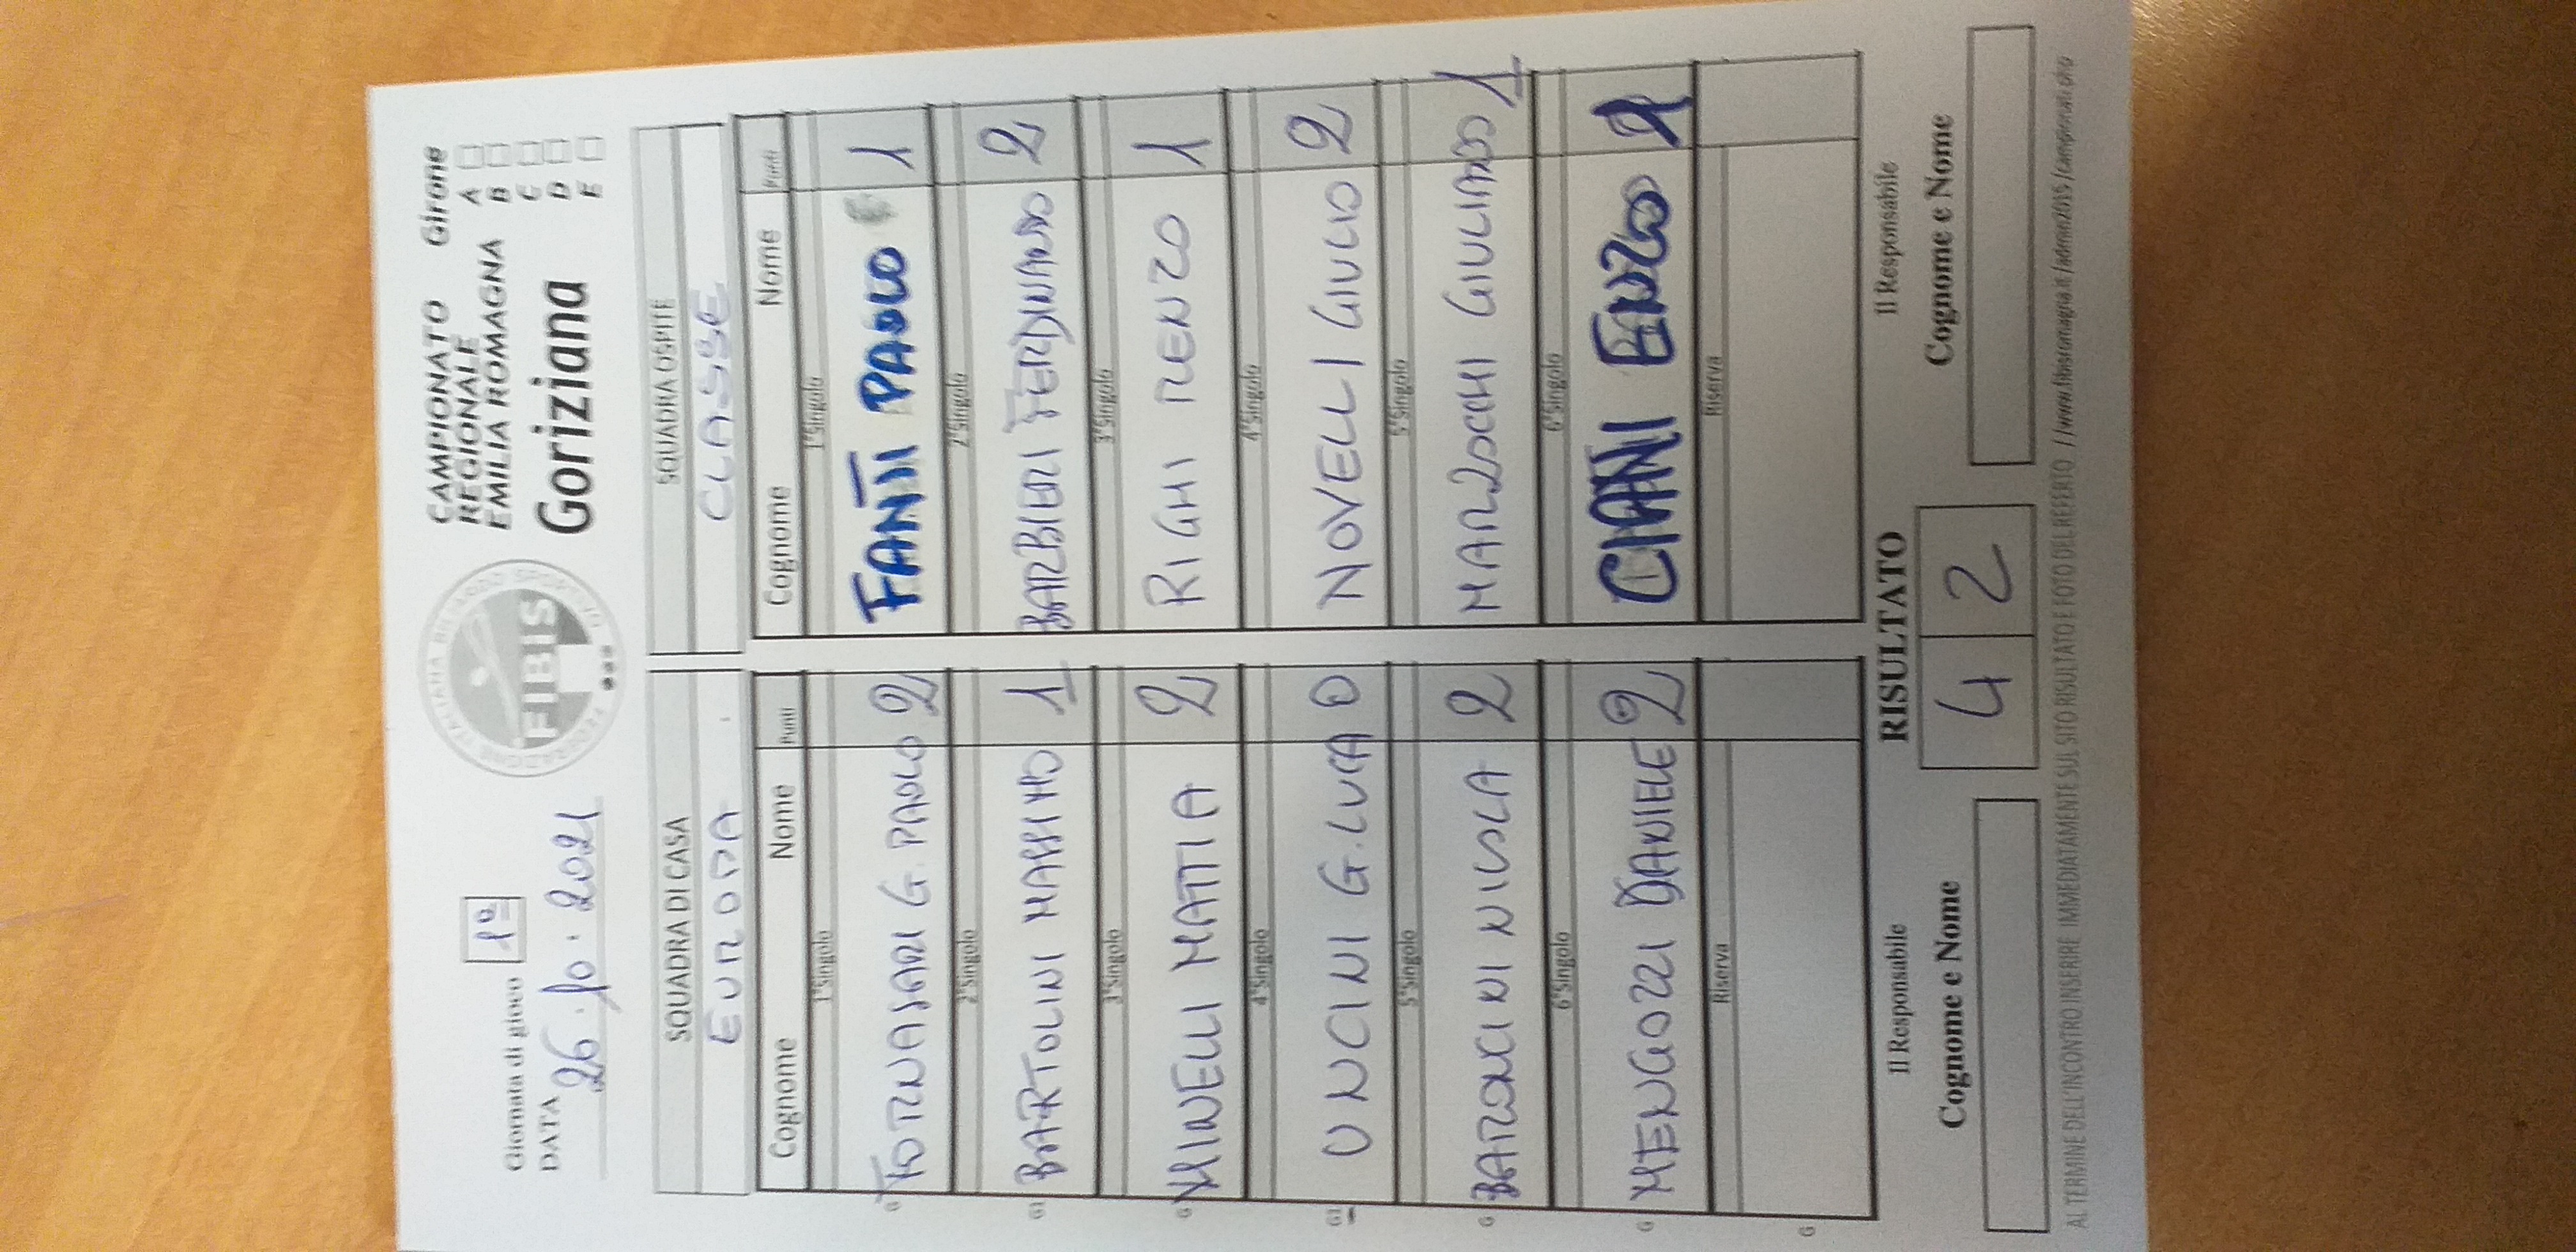 Giornata di gioco 1º
DATA 26.10.2021
FEDERAZIONE ITALIANA BILIARDO SPORTIVO
FIBIS
CAMPIONATO
REGIONALE
EMILIA ROMAGNA
Goriziana
Girone
A
B
C
D
E
SQUADRA DI CASA
EUROPA
SQUADRA OSPITE
CLASSE
Cognome Nome Punti
Cognome Nome Punti
1°Singolo
1°Singolo
G FORNASARI G. PAOLO 2
FANTI PAOLO 1
2°Singolo
2°Singolo
G1 BARTOLINI MASSIMO 1
BARBIERI FERDINANDO 2
3°Singolo
3°Singolo
G MINELLI MATTIA 2
RIGHI RENZO 1
4°Singolo
4°Singolo
G1 UNCINI G. LUCA 0
NOVELLI GIULIO 2
5°Singolo
5°Singolo
G BARONCINI NICOLA 2
MARZOCCHI GIULIANO 1
6°Singolo
6°Singolo
G MENGOZZI DANIELE 2
CIANI ENZO
Riserva
Riserva
G
Il Responsabile
RISULTATO
Il Responsabile
Cognome e Nome
4 2
Cognome e Nome
AL TERMINE DELL'INCONTRO INSERIRE IMMEDIATAMENTE SUL SITO RISULTATO E FOTO DEL REFERTO